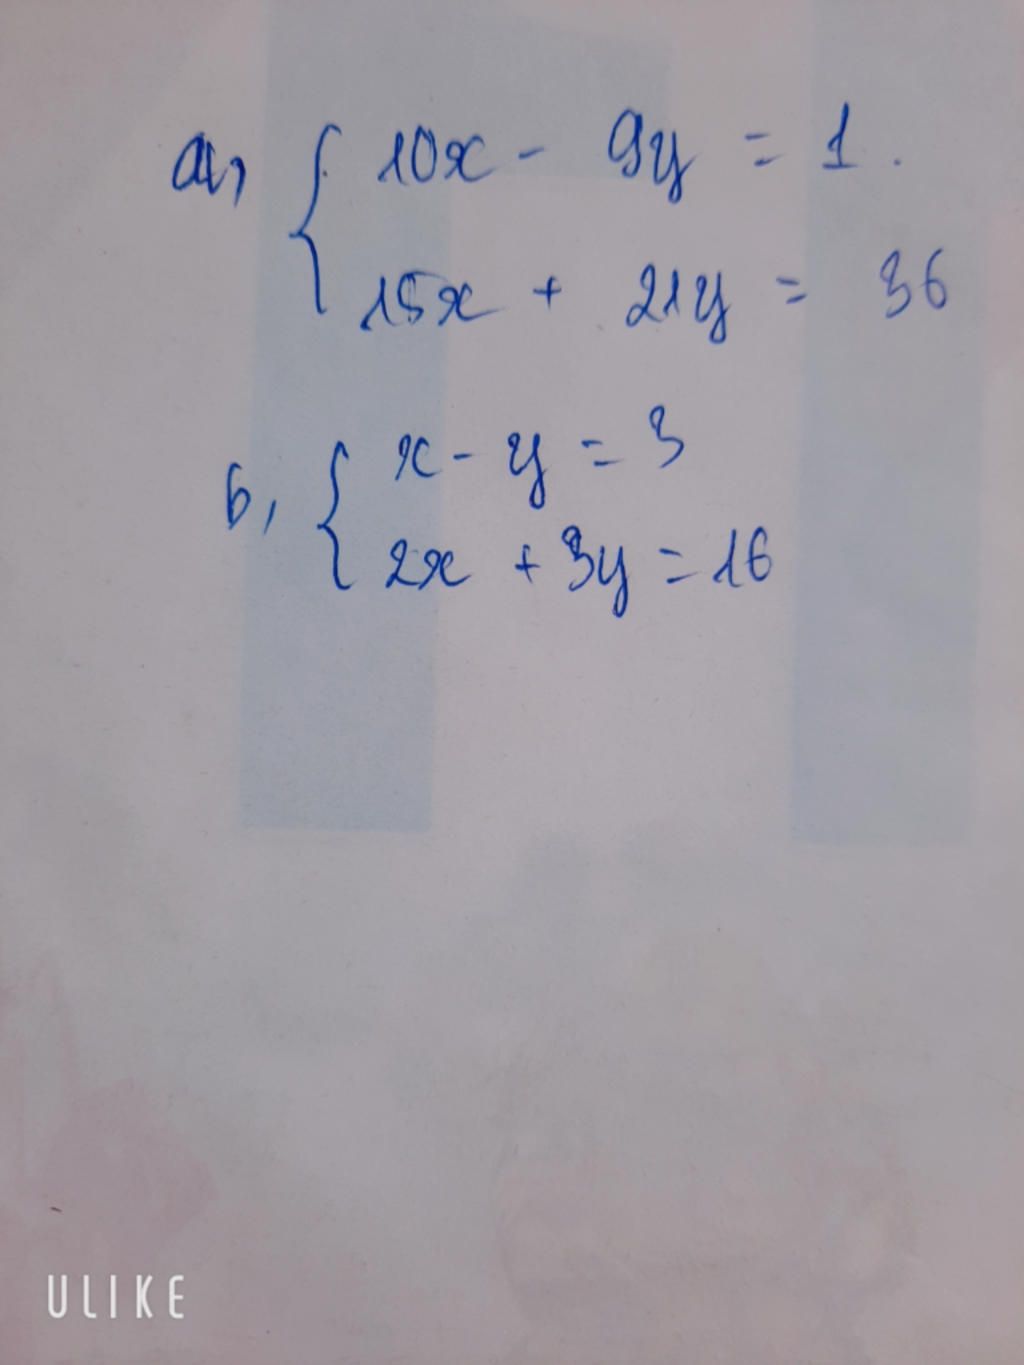 a, { 10x - 9y = 1.
15x + 21y = 36
b, { x - y = 3
2x + 3y = 16
ULIKE